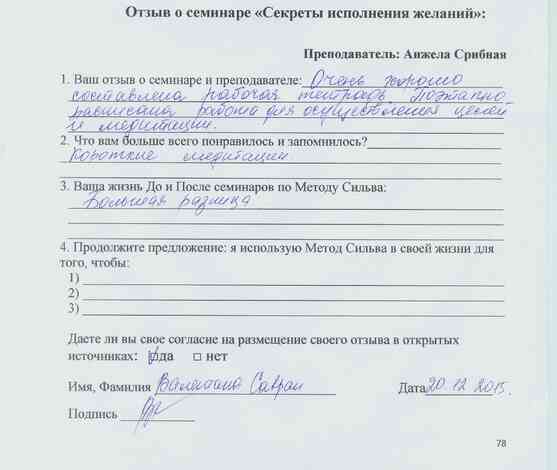 Отзыв о семинаре «Секреты исполнения желаний»:
Преподаватель: Анжела Срибная
1. Ваш отзыв о семинаре и преподавателе: Очень хорошо
составлена рабочая тетрадь. Поэтапно
расписана работа для осуществления целей
и медитации.
2. Что вам больше всего понравилось и запомнилось?
Короткие медитации
3. Ваша жизнь До и После семинаров по Методу Сильва:
Большая разница
4. Продолжите предложение: я использую Метод Сильва в своей жизни для
того, чтобы:
1)
2)
3)
Даете ли вы свое согласие на размещение своего отзыва в открытых
источниках: да нет
Имя, Фамилия Валентина Савран Дата 20.12.2015.
Подпись
78